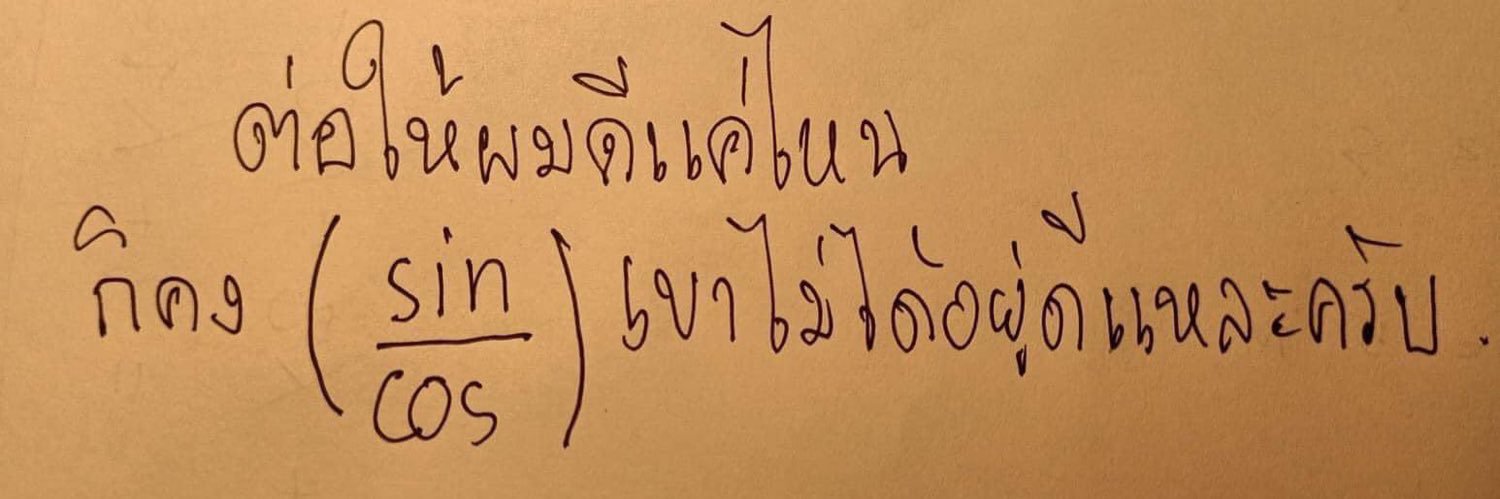 ต่อให้ผมดีแค่ไหน
ก็คง (sin/cos) เขาไม่ได้อยู่ดีแหละครับ.